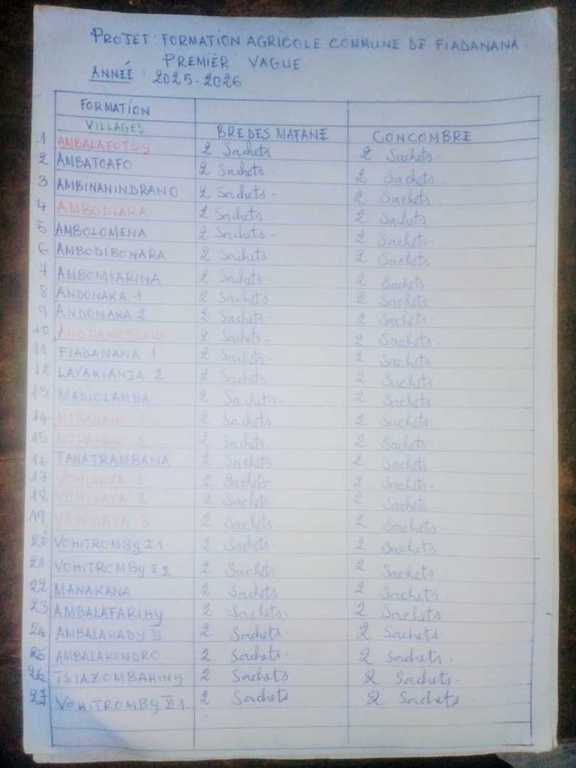 PROJET : FORMATION AGRICOLE COMMUNE DE FIADANANA
PREMIER VAGUE
ANNÉE : 2025-2026
FORMATION
VILLAGES BREDES MAFANE CONCOMBRE
1 AMBALAFOTSY 2 Sachets 2 Sachets.
2 AMBATOAFO 2 Sachets 2 Sachets.
3 AMBINANINDRANO 2 Sachets. 2 Sachets.
4 AMBODIARA 2 Sachets 2 Sachets
5 AMBOLOMENA 2 Sachets. 2 Sachets.
6 AMBODIBONARA 2 Sachets 2 Sachets
7 AMBOMIARINA 2 Sachets 2 Sachets
8 ANDONAKA 1 2 Sachets 2 Sachets
9 ANDONAKA 2 2 Sachets 2 Sachets
10 2 Sachets 2 Sachets
11 FIADANANA 1 2 Sachets 2 Sachets
12 LAVAKIANJA 2 2 Sachets 2 Sachets
13 MADIOLAMBA 2 Sachets 2 Sachets
14 2 Sachets 2 Sachets
15 2 Sachets 2 Sachets
16 TANATRAMBANA 2 Sachets 2 Sachets
17 2 Sachets 2 Sachets.
18 2 Sachets 2 Sachets
19 2 Sachets 2 Sachets
20 VOHITROMBY I 1 2 Sachets 2 Sachets
21 VOHITROMBY I 2 2 Sachets 2 Sachets
22 MANAKANA 2 Sachets 2 Sachets
23 AMBALAFARIHY 2 Sachets. 2 Sachets
24 AMBALAHADY II 2 Sachets 2 Sachets
25 AMBALAKONDRO 2 Sachets. 2 Sachets.
26 TSIAZOMBAHINY 2 Sachets 2 Sachets.
27 VOHITROMBY II 1 2 Sachets 2 Sachets.